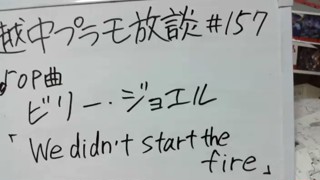 越中プラモ放談#157
OP曲
ビリー・ジョエル
「We didn't start the
fire」